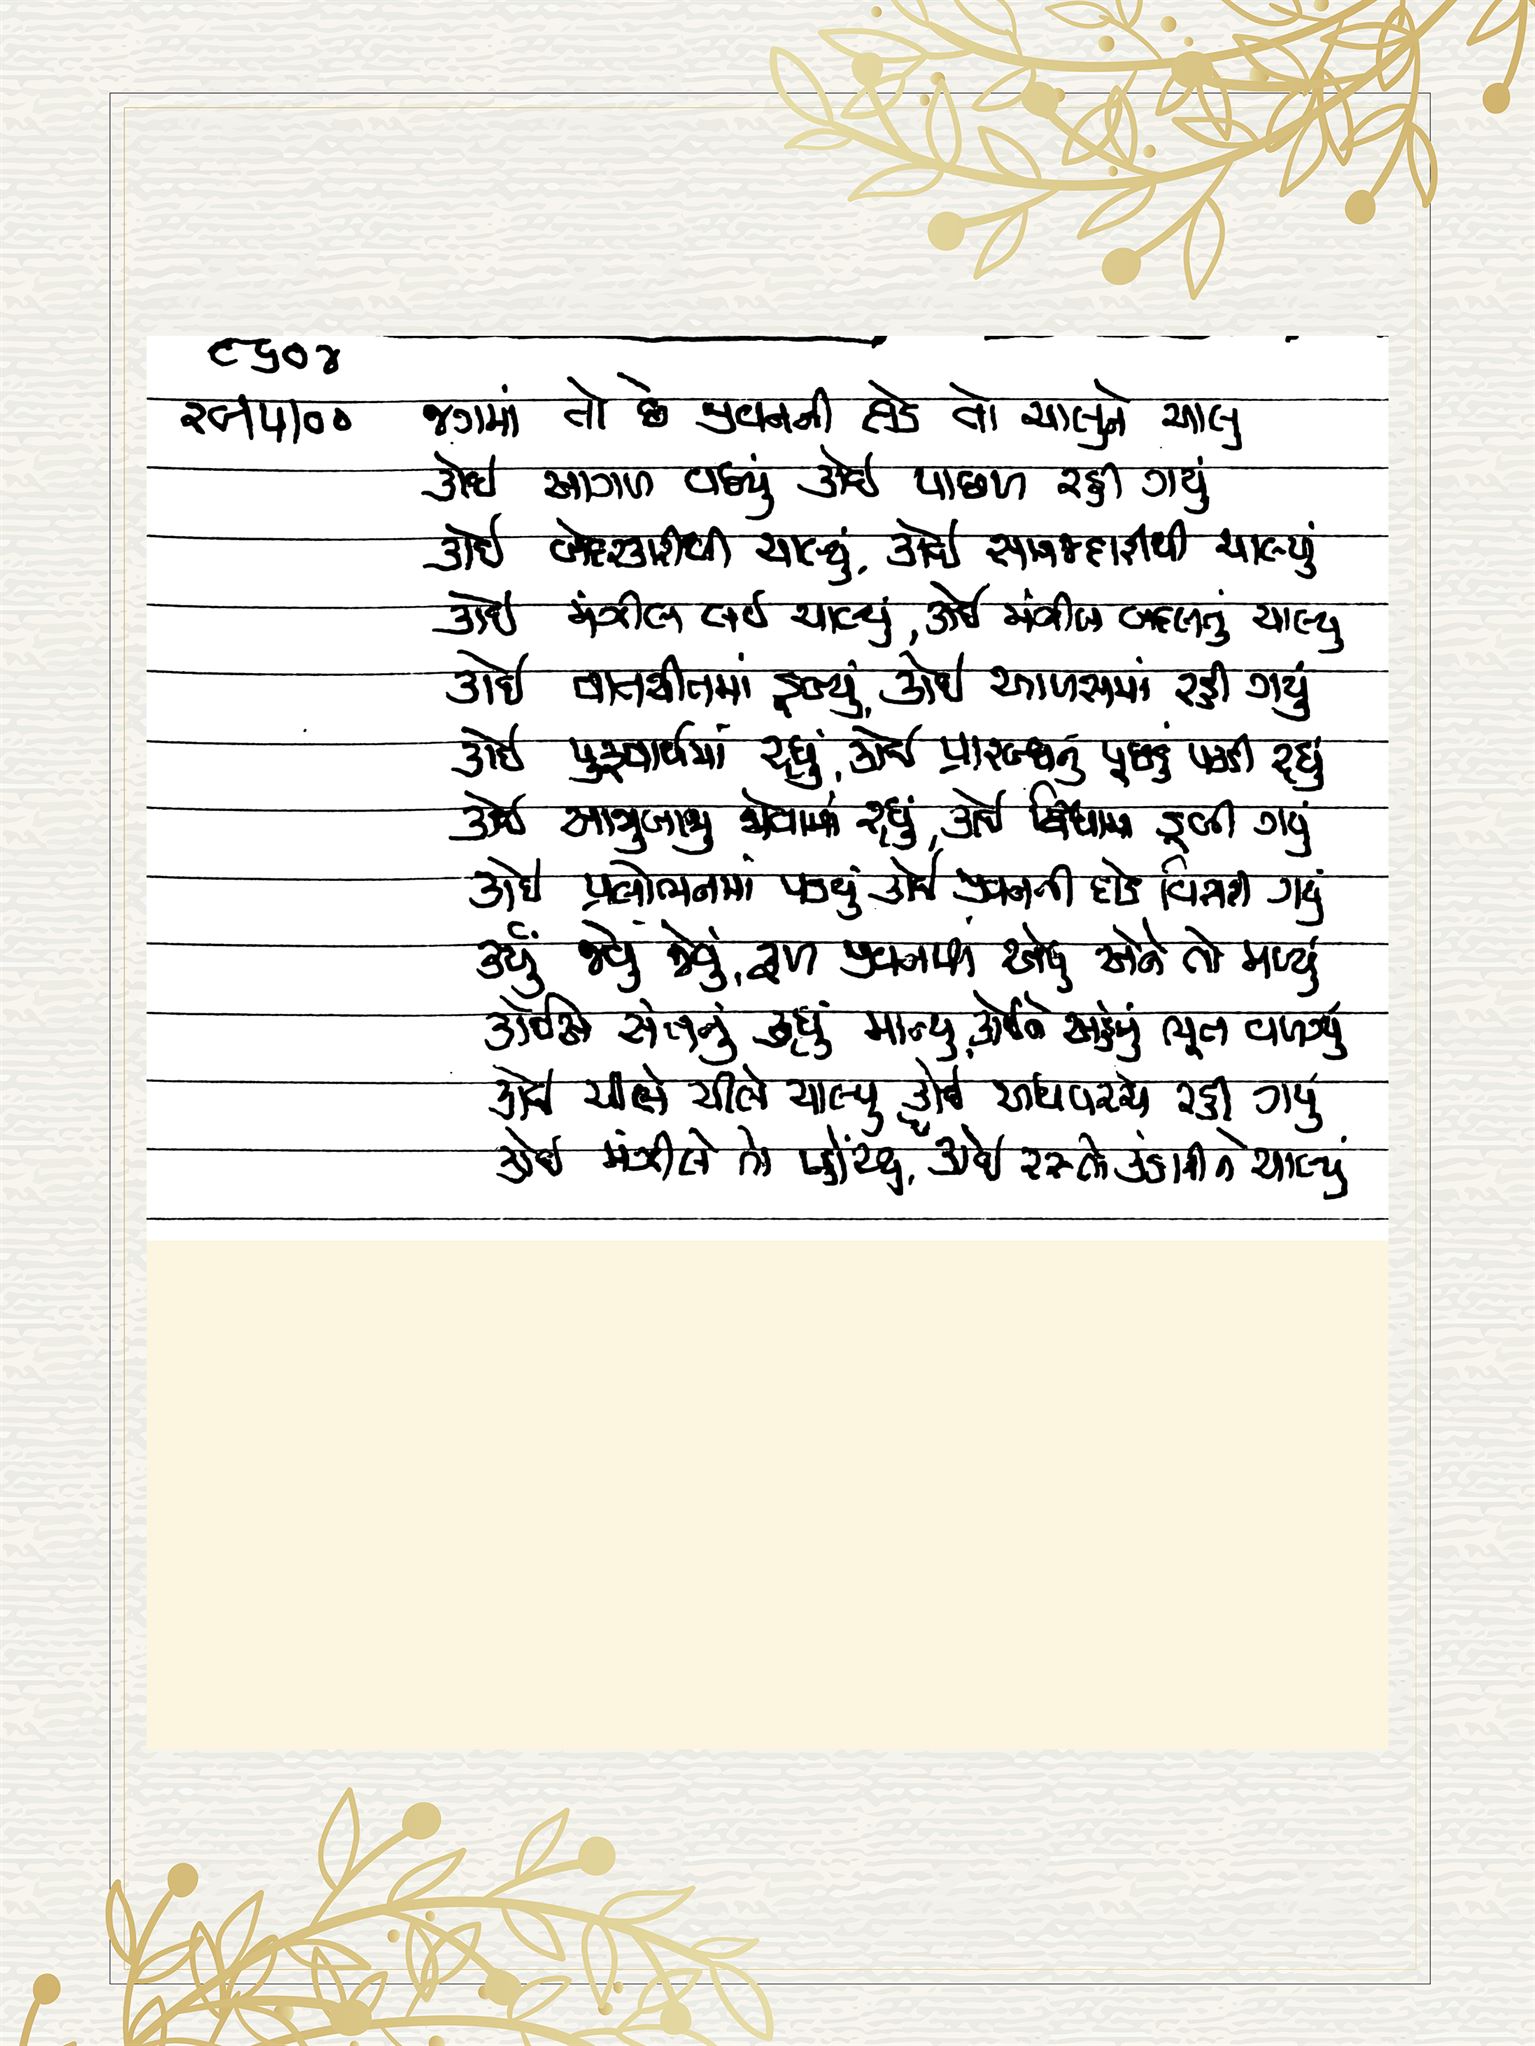 ૯૬૦૪
જગમાં તો છે જીવનની હોડ તો ચાલુને ચાલુ
કોઈ આગળ વધ્યું કોઈ પાછળ રહી ગયું
કોઈ બેદરકારીથી ચાલ્યું, કોઈ સમજદારીથી ચાલ્યું
કોઈ મંઝીલ લઈ ચાલ્યું, કોઈ મંઝીલ બદલતું ચાલ્યુ
કોઈ વાતચીતમાં ડૂબ્યું, કોઈ આળસમાં રહી ગયું
કોઈ પુરુષાર્થમાં રહ્યું, કોઈ પ્રારબ્ધનું પૂછડું પકડી રહ્યું
કોઈ આજુબાજુ જોવામાં રહ્યું, કોઈ ડૂબી ગયું
કોઈ પ્રલોભનમાં પડયું કોઈ જીવનની દોડ વિસરી ગયું
કર્યું જેવું જેવું, ફળ જીવનમાં એવુ એને તો મળ્યું
કોઈએ સંતનું કહ્યું માન્યુ, કોઈને અહંનું ભૂત વળગ્યું
કોઈ ચીલે ચીલે ચાલ્યુ કોઈ અધવચ્ચે રહી ગયું
કોઈ મંઝીલે તો પહોંચ્યુ, કોઈ રસ્તો કંડારીને ચાલ્યું